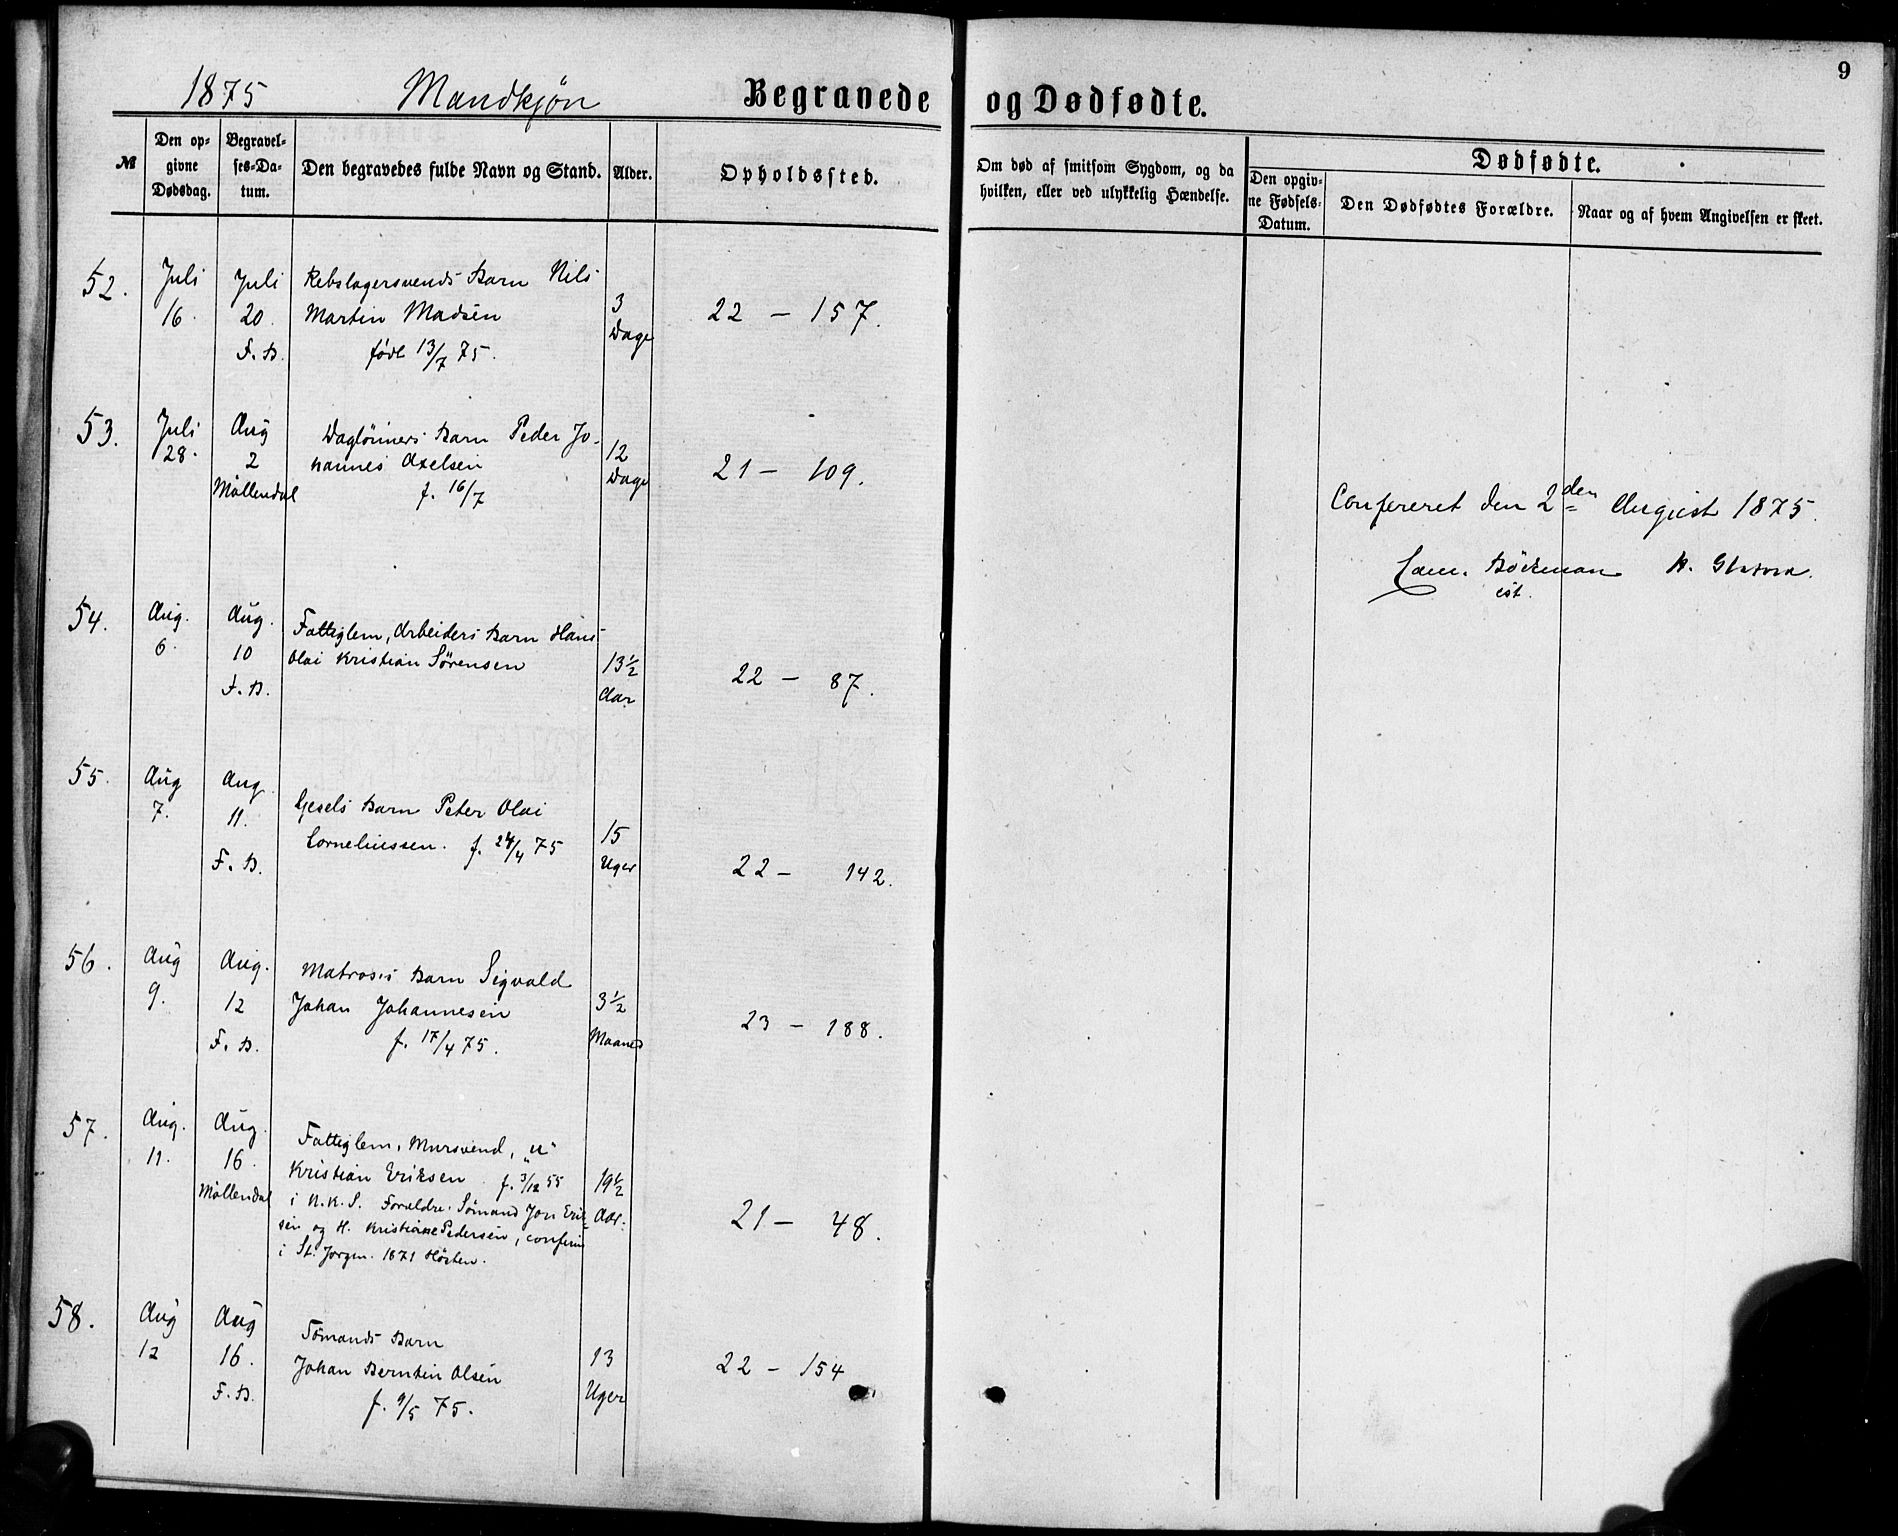 9
1875 Mandkjøn Begravede og Dødfødte.
№
Den op-
givne
Dødsdag.
Begravel-
ses-Da-
tum.
Den begravedes fulde Navn og Stand.
Alder.
Opholdssted.
Om død af smitsom Sygdom, og da
hvilken, eller ved ulykkelig Hændelse.
Dødfødte.
Den opgiv-
ne Fødsels-
Datum.
Den Dødfødtes Forældre.
Naar og af hvem Angivelsen er skeet.
52.
Juli
16.
Juli
20.
F. B.
Rebslagersvends Barn Nils
Martin Madsen
født 13/7 75.
3
Dage
22 - 157.
53.
Juli
28.
Aug
2
Møllendal
Daglønners Barn Peder Jo-
hannes Axelsen
f. 16/7
12
Dage
21 - 109.
Confereret den 2den August 1875.
Böckman
cst.
54.
Aug.
6.
Aug.
10
F. B.
Fattiglem, Arbeiders Barn Hans
Olai Kristian Sørensen
13½
Aar
22 - 87.
55.
Aug
7.
Aug.
11.
F. B.
Gesels Barn Peter Olai
Corneliussen. f. 24/4 75
15
Uger
22 - 142.
56.
Aug
9.
Aug.
12
F. B.
Matroses Barn Sigvald
Johan Johannesen
f. 17/4 75.
3½
Maaned
23 - 188.
57.
Aug.
11.
Aug.
16.
Møllendal
Fattiglem, Mursvend, "u"
Kristian Eriksen f. 3/12 55
i N. K. S. Forældre: Sømand Jon Erik-
sen og H. Kristiane Pedersen, confirm
i St. Jørgen. 1871 Høsten.
19½
Aar.
21 - 48.
58.
Aug
12
Aug
16.
F. B.
Sømands Barn
Johan Berntin Olsen
f. 9/5 75.
13
Uger
22 - 154